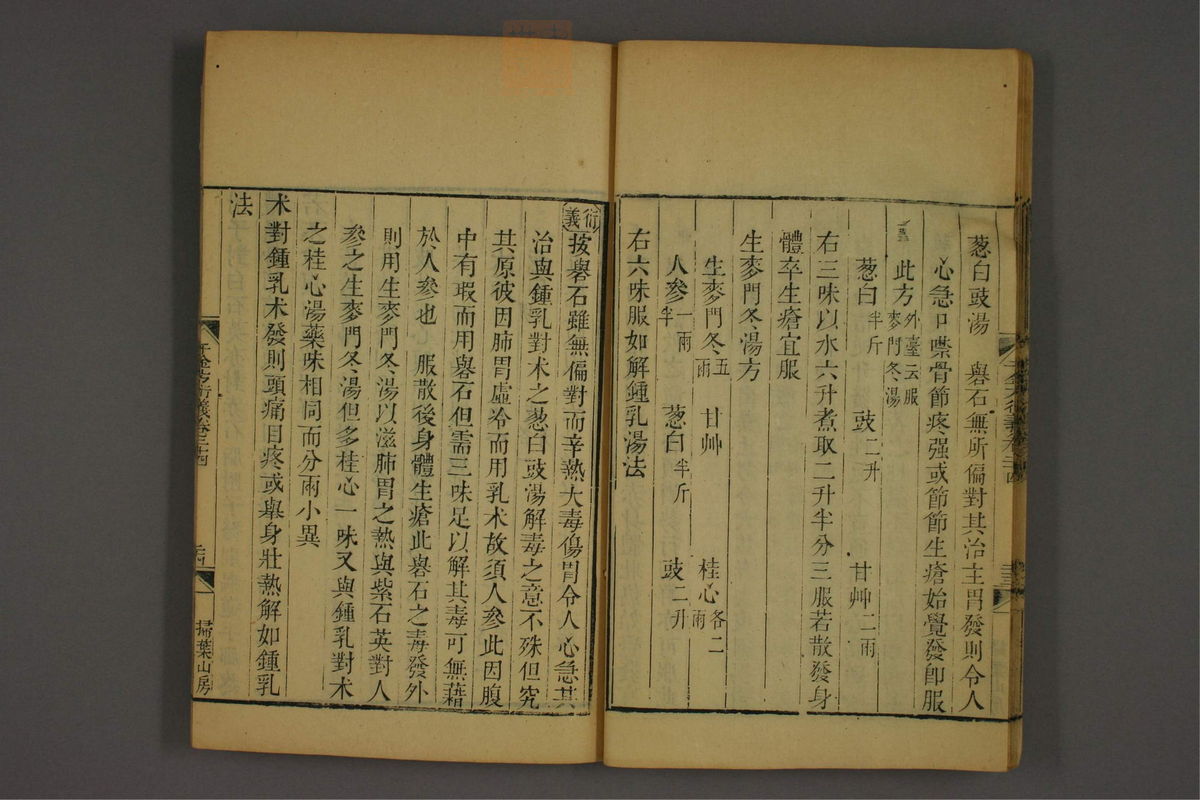 葱白豉湯　礜石無所偏對其治主胃發則令人
心急口噤骨節疼强或節節生瘡始覺發卽服
此方外臺云服麥門冬湯
葱白半斤　豉二升　甘艸二兩
右三味以水六升煮取二升半分三服若散發身
體卒生瘡宜服
生麥門冬湯方
生麥門冬五兩　甘艸　桂心各二兩
人參一兩半　葱白半斤　豉二升
右六味服如解鍾乳湯法
衍義按礜石雖無偏對而辛熱大毒傷胃令人心急其
治與鍾乳對术之葱白豉湯解毒之意不殊但究
其原彼因肺胃虛冷而用乳术故須人參此因腹
中有瑕而用礜石但需三味足以解其毒可無藉
於人參也　服散後身體生瘡此礜石之毒發外
則用生麥門冬湯以滋肺胃之熱與紫石英對人
參之生麥門冬湯但多桂心一味又與鍾乳對术
之桂心湯藥味相同而分兩小異
术對鍾乳术發則頭痛目疼或舉身壯熱解如鍾乳
法
千金方衍義卷二十四
掃葉山房